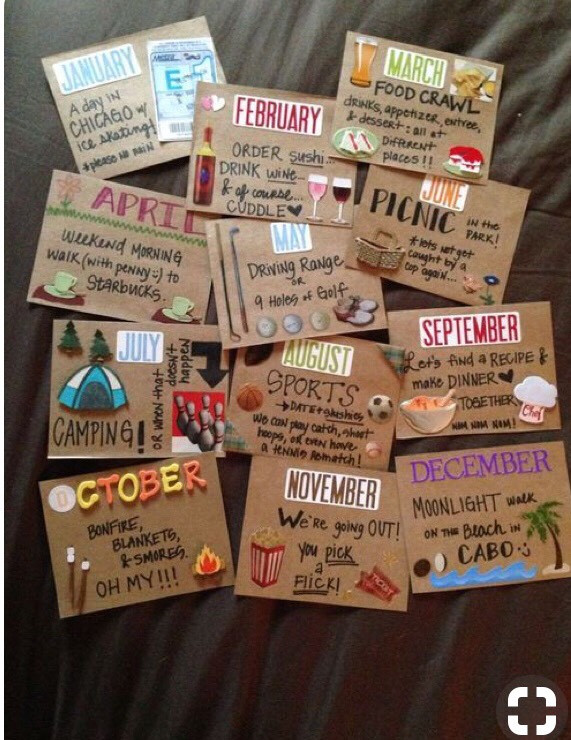 JANUARY
A day in
CHICAGO w/
ice skating!
*please no rain
E
FEBRUARY
ORDER sushi...
DRINK wine...
& of course...
CUDDLE
MARCH
FOOD CRAWL
drinks, appetizer, entree,
& dessert: all at
Different
places!!
APRIL
Weekend MORNING
walk (with penny :) to
STARBUCKS.
MAY
DRIVING RANGE
OR
9 Holes of Golf
JUNE
PICNIC IN the
PARK!
*lets not get
caught by a
cop again...
JULY
CAMPING!
OR when that
doesn't
happen
AUGUST
SPORTS
DATE + slushies
We can play catch, shoot
hoops, or even have
a tennis rematch!
SEPTEMBER
Let's find a RECIPE &
make DINNER
TOGETHER
NOM NOM NOM!
Chef
OCTOBER
BONFIRE,
BLANKETS,
& SMORES.
OH MY!!!
NOVEMBER
We're going OUT!
you pick
a
FLICK!
TICKET
DECEMBER
MOONLIGHT walk
ON the Beach in
CABO :)